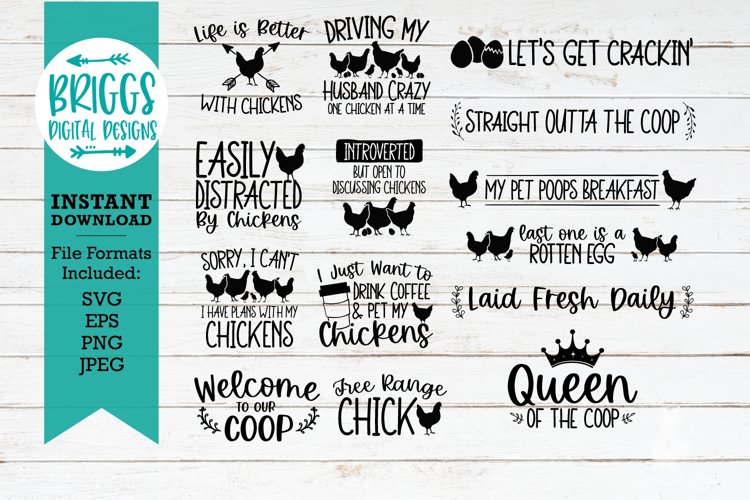 BRIGGS
DIGITAL DESIGNS
INSTANT
DOWNLOAD
File Formats
Included:
SVG
EPS
PNG
JPEG
Life is Better
WITH CHICKENS
DRIVING MY
HUSBAND CRAZY
ONE CHICKEN AT A TIME
EASILY
DISTRACTED
By Chickens
INTROVERTED
BUT OPEN TO
DISCUSSING CHICKENS
SORRY, I CAN'T
I HAVE PLANS WITH MY
CHICKENS
I Just Want to
DRINK COFFEE
& PET MY
Chickens
Welcome
TO OUR
COOP
Free Range
CHICK
LET'S GET CRACKIN'
STRAIGHT OUTTA THE COOP
MY PET POOPS BREAKFAST
last one is a
ROTTEN EGG
Laid Fresh Daily
Queen
OF THE COOP